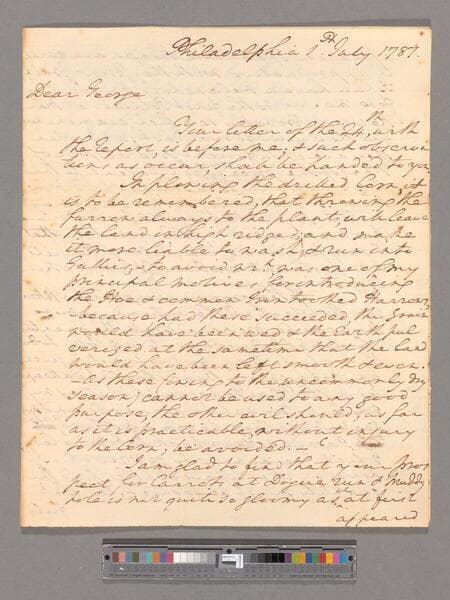 Philadelphia 1st July 1787.
Dear George
Your letter of the 24th, with
the Report, is before me; & such observa
tions as occur, shall be handed to you.
In plowing the drilled Corn, it
is to be remembered, that throwing the
furrow always to the plant, will leave
the land in high ridges; and make
it more liable to wash, & run into
Gullies; to avoid wch was one of my
principal motives for introducing
the Hoe & common Iron toothed Harrow;
—because had these succeeded, the grain
would have been wed & the Earth pul
verized, at the same time that the land
would have been left smooth & even.
—As these (owing to the uncommonly dry
season) cannot be used to any good
purpose, the other evil should, as far
as it is practicable, without injury
to the Corn, be avoided.—
I am glad to find that your pros
pect for Carrots at Dogue run & Muddy
hole is not quite so gloomy as at first
appeared